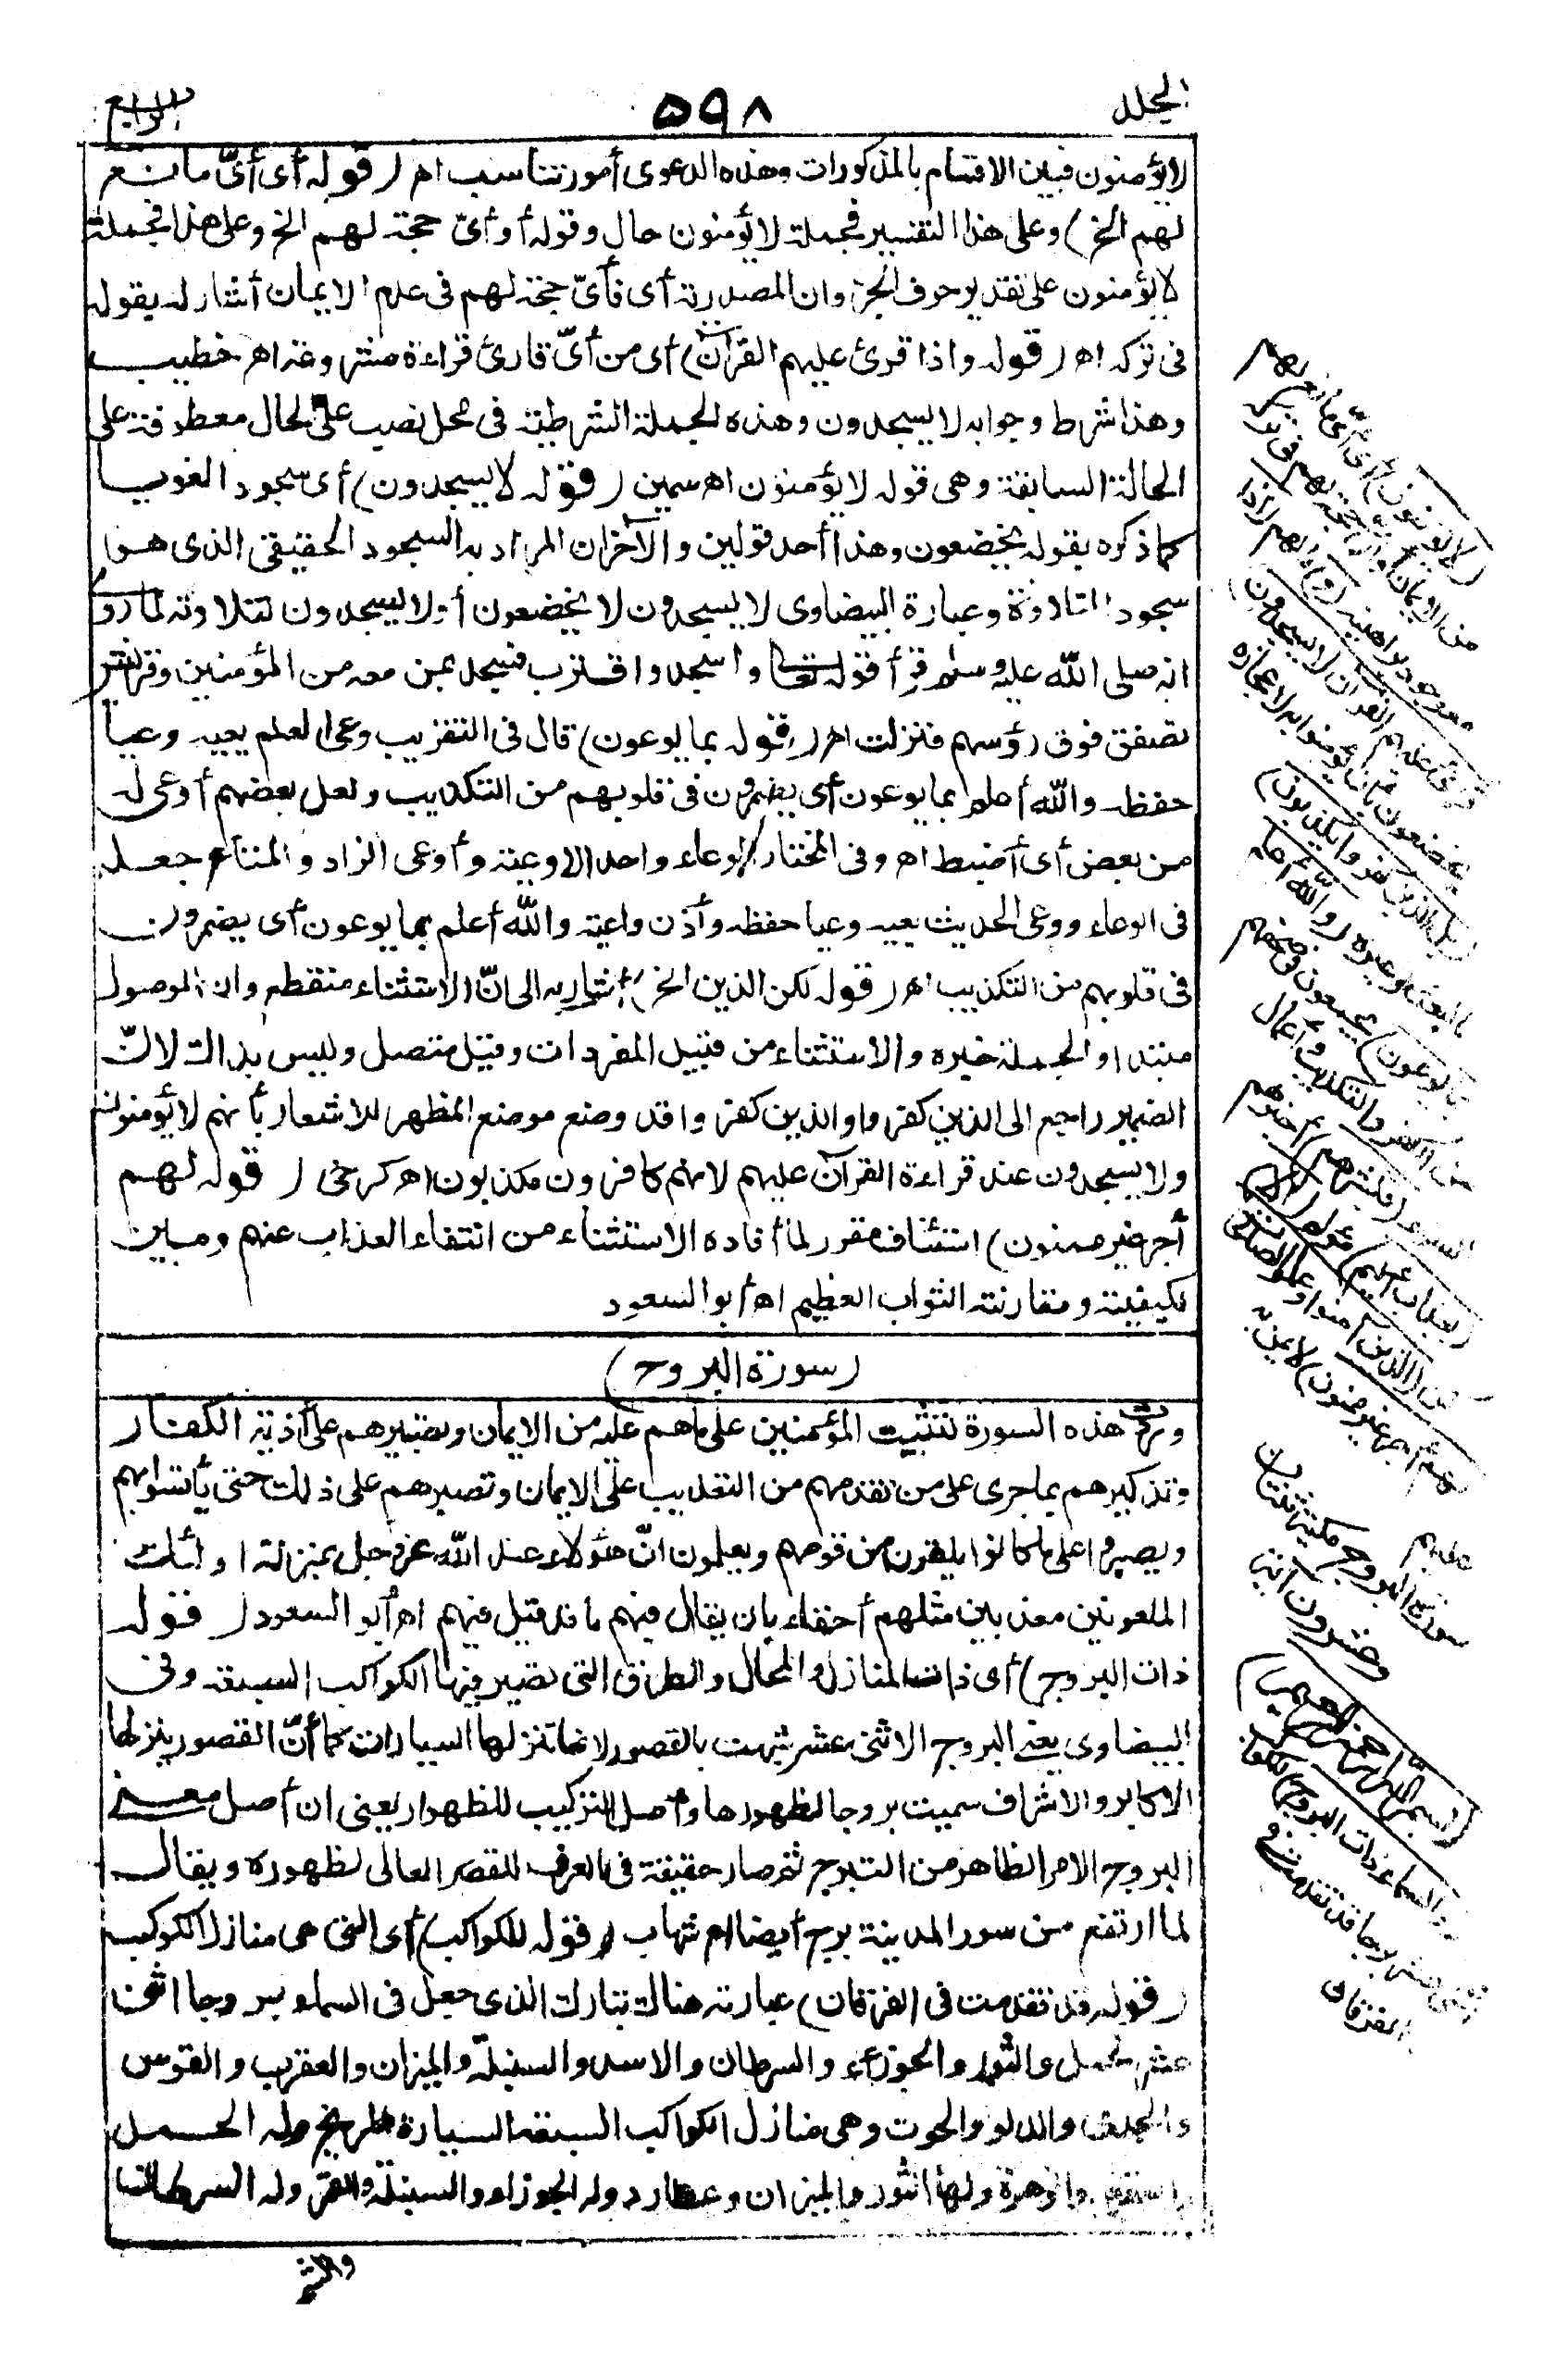 المجلد
٥٩٨
الرابع
لا يؤمنون فبين الاقسام بالمذكورات وهذه الدعوى أمور تتناسب اهـ (قوله أى أىّ مانع
لهم الخ) وعلى هذا التفسير فجملة لا يؤمنون حال وقوله أو أىّ حجة لهم الخ وعلى هذا فجملة
لا يؤمنون على تقدير حرف الجر وان المصدرية أى فأىّ حجة لهم فى عدم الايمان أشار له بقوله
فى تركه اهـ (قوله واذا قرئ عليهم القرآن) أى من أىّ قارئ قراءة مشروعة اهـ خطيب
وهذا شرط وجوابه لا يسجدون وهذه الجملة الشرطية فى محل نصب على الحال معطوفة على
الحالة السابقة وهى قوله لا يؤمنون اهـ سمين (قوله لا يسجدون) أى سجود الغويا
كما ذكره بقوله يخضعون وهذا أحد قولين والآخر ان المراد به السجود الحقيقى الذى هو
سجود التلاوة وعبارة البيضاوى لا يسجدون لا يخضعون أو لا يسجدون لتلاوته لما روى
انه صلى الله عليه وسلم قرأ قوله تعالى واسجد واقترب فسجد بمن معه من المؤمنين وقريش
تصفق فوق رؤسهم فنزلت اهـ (قوله بما يوعون) قال فى التقريب وعى العلم يعيه وعيا
حفظه والله أعلم بما يوعون أى يضمرون فى قلوبهم من التكذيب ولعل بعضهم أوعى له
من بعض أى أضبط اهـ وفى المختار الوعاء واحد الاوعية وأوعى الزاد والمتاع جعله
فى الوعاء ووعى الحديث يعيه وعيا حفظه وأذن واعية والله أعلم بما يوعون أى يضمرون
فى قلوبهم من التكذيب اهـ (قوله لكن الذين الخ) أشار به الى انّ الاستثناء منقطع وان الموصول
مبتدا والجملة خبره والاستثناء من قبيل المفردات وقيل متصل وليس بذاك لانّ
الضمير راجع الى الذين كفروا والذين كفروا قد وضع موضع المظهر للاشعار بأنهم لا يؤمنون
ولا يسجدون عند قراءة القرآن عليهم لانهم كافرون مكذبون اهـ كرخى (قوله لهم
أجر غير ممنون) استئناف مقرر لما أفاده الاستثناء من انتفاء العذاب عنهم ومبين
لكيفيته ومقارنته الثواب العظيم اهـ أبو السعود
(سورة البروج)
ونزلت هذه السورة لتثبيت المؤمنين على ما هم عليه من الايمان وتصبيرهم على أذية الكفار
وتذكيرهم بما جرى على من تقدمهم من التعذيب على الايمان وتصبرهم على ذلك حتى يأنسوا بهم
ويصبروا على ما كانوا يلقون من قومهم ويعلمون انّ هؤلاء عند الله عز وجل بمنزلة اولئك
الملعونين معذبين مثلهم أحقاء بان يقال فيهم ما قد قيل فيهم اهـ أبو السعود (قوله
ذات البروج) أى ذات المنازل والمحال والطرق التى تصير فيها الكواكب السبعة وفى
البيضاوى يعنى البروج الاثنى عشر شبهت بالقصور لانها تنزلها السيارات كما أنّ القصور ينزلها
الاكابر والاشراف سميت بروجا لظهورها وأصل التركيب للظهور اهـ يعنى ان أصل معنى
البروج الامر الظاهر من التبرج ثم صار حقيقة فى العرف للقصر العالى لظهوره ويقال
لما ارتفع من سور المدينة برج أيضا اهـ شهاب (قوله للكواكب) أى التى هى منازل الكواكب
(قوله قد تقدمت فى الفرقان) عبارته هناك تبارك الذى جعل فى السماء بروجا اثنى
عشر الحمل والثور والجوزاء والسرطان والاسد والسنبلة والميزان والعقرب والقوس
والجدى والدلو والحوت وهى منازل الكواكب السبعة السيارة المريخ وله الحمل
والعقرب والزهرة ولها الثور والميزان وعطارد وله الجوزاء والسنبلة والقمر وله السرطان
(لا يؤمنون) أى أىّ مانع لهم
من الايمان أو أىّ حجة لهم فى تركه
مع وجود براهينه (و) مالهم (اذا
قرئ عليهم القرآن لا يسجدون)
يخضعون بأن يؤمنوا به لاعجازه
(بل الذين كفروا يكذبون)
بالبعث وغيره (والله أعلم
بما يوعون) يجمعون فى صحفهم
من الكفر والتكذيب وأعمال
السوء (فبشرهم) أخبرهم
(بعذاب أليم) مؤلم (الا)
لكن (الذين آمنوا وعملوا الصالحات
لهم أجر غير ممنون) لا يمن به
عليهم
سورة البروج مكية ثنتان
وعشرون آية
(بسم الله الرحمن الرحيم)
(والسماء ذات البروج) للكواكب
اثنى عشر برجا قد تقدمت فى
الفرقان